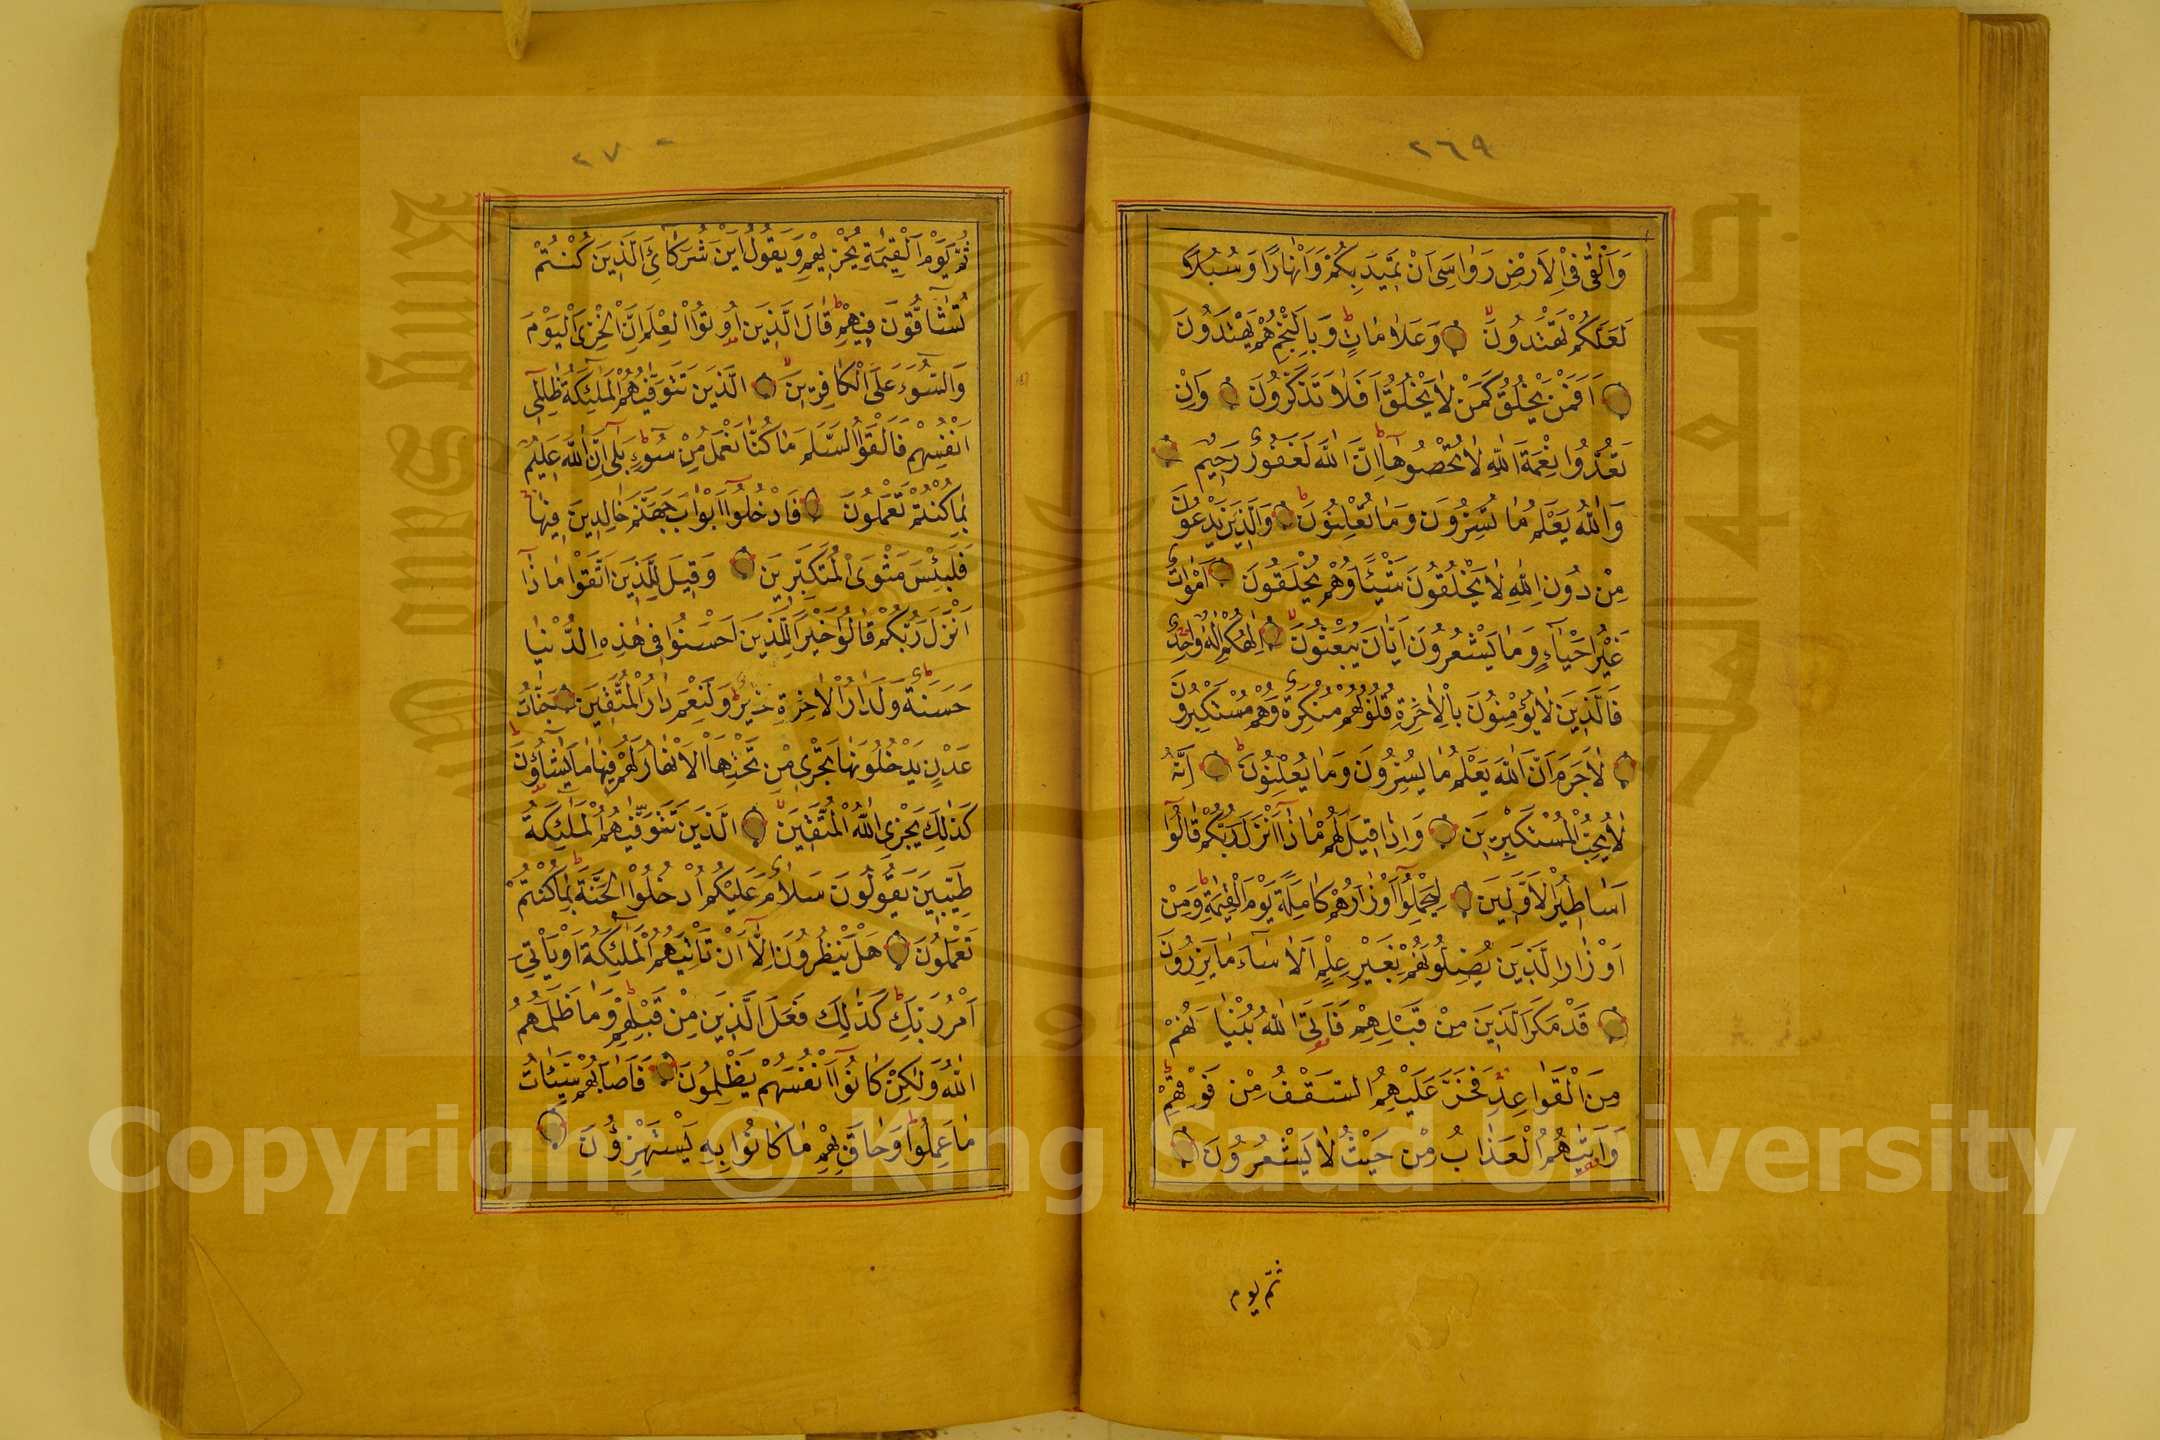 ٢٦٩
وَاَلْقٰى فِى الْاَرْضِ رَوَاسِىَ اَنْ تَمٖيدَ بِكُمْ وَاَنْهَارًا وَسُبُلًا
لَعَلَّكُمْ تَهْتَدُونَ وَعَلَامَاتٍ وَبِالنَّجْمِ هُمْ يَهْتَدُونَ
اَفَمَنْ يَخْلُقُ كَمَنْ لَا يَخْلُقُ اَفَلَا تَذَكَّرُونَ وَاِنْ
تَعُدُّوا نِعْمَةَ اللّٰهِ لَا تُحْصُوهَا اِنَّ اللّٰهَ لَغَفُورٌ رَحٖيمٌ
وَاللّٰهُ يَعْلَمُ مَا تُسِرُّونَ وَمَا تُعْلِنُونَ وَالَّذٖينَ يَدْعُونَ
مِنْ دُونِ اللّٰهِ لَا يَخْلُقُونَ شَيْئًا وَهُمْ يُخْلَقُونَ اَمْوَاتٌ
غَيْرُ اَحْيَاءٍ وَمَا يَشْعُرُونَ اَيَّانَ يُبْعَثُونَ اِلٰهُكُمْ اِلٰهٌ وَاحِدٌ
فَالَّذٖينَ لَا يُؤْمِنُونَ بِالْاٰخِرَةِ قُلُوبُهُمْ مُنْكِرَةٌ وَهُمْ مُسْتَكْبِرُونَ
لَا جَرَمَ اَنَّ اللّٰهَ يَعْلَمُ مَا يُسِرُّونَ وَمَا يُعْلِنُونَ اِنَّهُ
لَا يُحِبُّ الْمُسْتَكْبِرٖينَ وَاِذَا قٖيلَ لَهُمْ مَاذَا اَنْزَلَ رَبُّكُمْ قَالُوا
اَسَاطٖيرُ الْاَوَّلٖينَ لِيَحْمِلُوا اَوْزَارَهُمْ كَامِلَةً يَوْمَ الْقِيٰمَةِ وَمِنْ
اَوْزَارِ الَّذٖينَ يُضِلُّونَهُمْ بِغَيْرِ عِلْمٍ اَلَا سَاءَ مَا يَزِرُونَ
قَدْ مَكَرَ الَّذٖينَ مِنْ قَبْلِهِمْ فَاَتَى اللّٰهُ بُنْيَانَهُمْ
مِنَ الْقَوَاعِدِ فَخَرَّ عَلَيْهِمُ السَّقْفُ مِنْ فَوْقِهِمْ
وَاَتٰيهُمُ الْعَذَابُ مِنْ حَيْثُ لَا يَشْعُرُونَ
ثم يوم
٢٧٠
ثُمَّ يَوْمَ الْقِيٰمَةِ يُخْزٖيهِمْ وَيَقُولُ اَيْنَ شُرَكَائِىَ الَّذٖينَ كُنْتُمْ
تُشَاقُّونَ فٖيهِمْ قَالَ الَّذٖينَ اُوتُوا الْعِلْمَ اِنَّ الْخِزْىَ الْيَوْمَ
وَالسُّوءَ عَلَى الْكَافِرٖينَ الَّذٖينَ تَتَوَفّٰيهُمُ الْمَلٰئِكَةُ ظَالِمٖى
اَنْفُسِهِمْ فَاَلْقَوُا السَّلَمَ مَا كُنَّا نَعْمَلُ مِنْ سُوءٍ بَلٰى اِنَّ اللّٰهَ عَلٖيمٌ
بِمَا كُنْتُمْ تَعْمَلُونَ فَادْخُلُوا اَبْوَابَ جَهَنَّمَ خَالِدٖينَ فٖيهَا
فَلَبِئْسَ مَثْوَى الْمُتَكَبِّرٖينَ وَقٖيلَ لِلَّذٖينَ اتَّقَوْا مَاذَا
اَنْزَلَ رَبُّكُمْ قَالُوا خَيْرًا لِلَّذٖينَ اَحْسَنُوا فٖى هٰذِهِ الدُّنْيَا
حَسَنَةٌ وَلَدَارُ الْاٰخِرَةِ خَيْرٌ وَلَنِعْمَ دَارُ الْمُتَّقٖينَ جَنَّاتُ
عَدْنٍ يَدْخُلُونَهَا تَجْرٖى مِنْ تَحْتِهَا الْاَنْهَارُ لَهُمْ فٖيهَا مَا يَشَاؤُنَ
كَذٰلِكَ يَجْزِى اللّٰهُ الْمُتَّقٖينَ الَّذٖينَ تَتَوَفّٰيهُمُ الْمَلٰئِكَةُ
طَيِّبٖينَ يَقُولُونَ سَلَامٌ عَلَيْكُمُ ادْخُلُوا الْجَنَّةَ بِمَا كُنْتُمْ
تَعْمَلُونَ هَلْ يَنْظُرُونَ اِلَّا اَنْ تَاْتِيَهُمُ الْمَلٰئِكَةُ اَوْ يَاْتِىَ
اَمْرُ رَبِّكَ كَذٰلِكَ فَعَلَ الَّذٖينَ مِنْ قَبْلِهِمْ وَمَا ظَلَمَهُمُ
اللّٰهُ وَلٰكِنْ كَانُوا اَنْفُسَهُمْ يَظْلِمُونَ فَاَصَابَهُمْ سَيِّئَاتُ
مَا عَمِلُوا وَحَاقَ بِهِمْ مَا كَانُوا بِهٖ يَسْتَهْزِؤُنَ
King Saud University
1957
Copyright © King Saud University